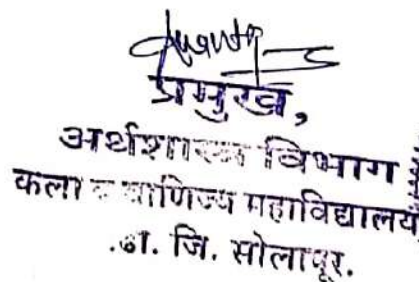 प्रमुख,
अर्थशास्त्र विभाग
कला व वाणिज्य महाविद्यालय
जि. सोलापूर.